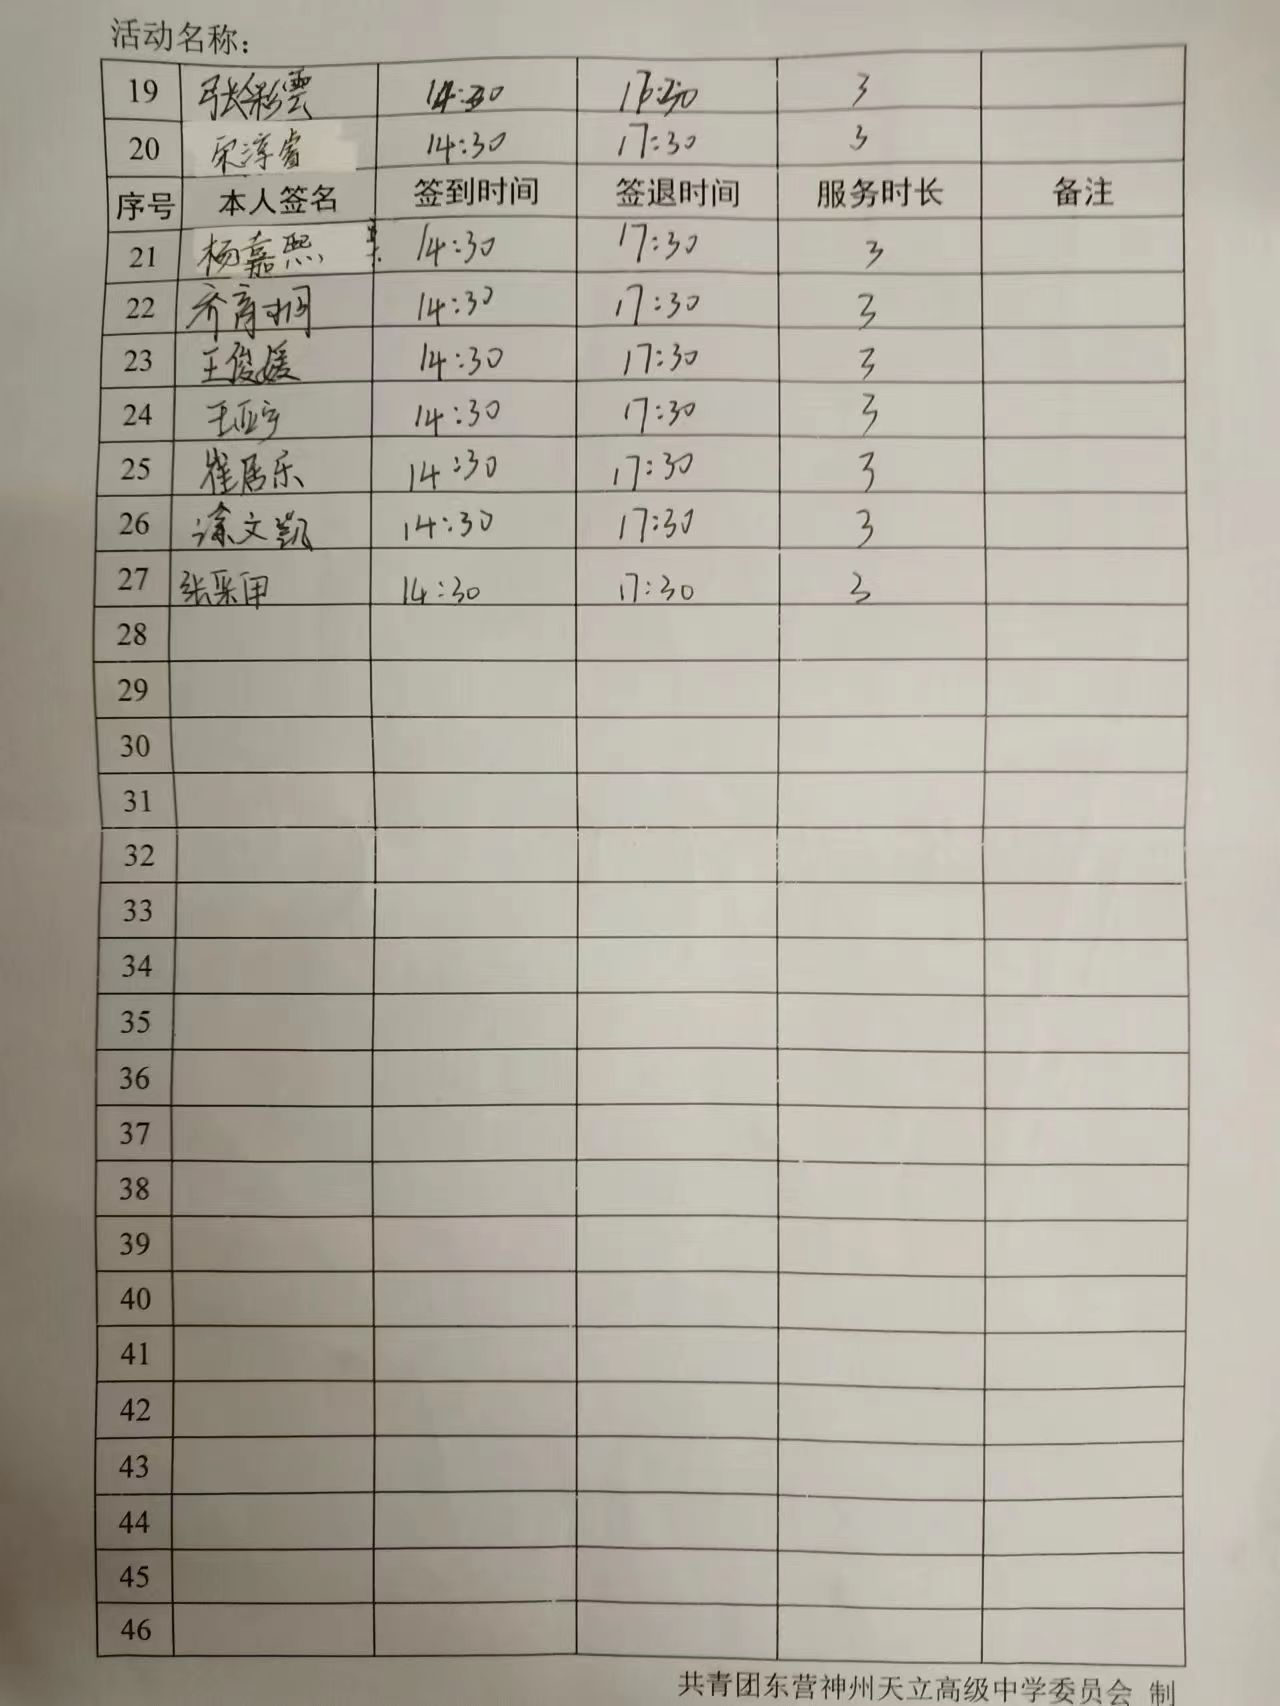 活动名称：
19 张彩雲 14:30 17:30 3
20 宋淳睿 14:30 17:30 3
序号 本人签名 签到时间 签退时间 服务时长 备注
21 杨嘉熙 14:30 17:30 3
22 齐育桐 14:30 17:30 3
23 王俊媛 14:30 17:30 3
24 王亚宁 14:30 17:30 3
25 崔居乐 14:30 17:30 3
26 涂文凯 14:30 17:30 3
27 张采田 14:30 17:30 3
28
29
30
31
32
33
34
35
36
37
38
39
40
41
42
43
44
45
46
共青团东营神州天立高级中学委员会 制